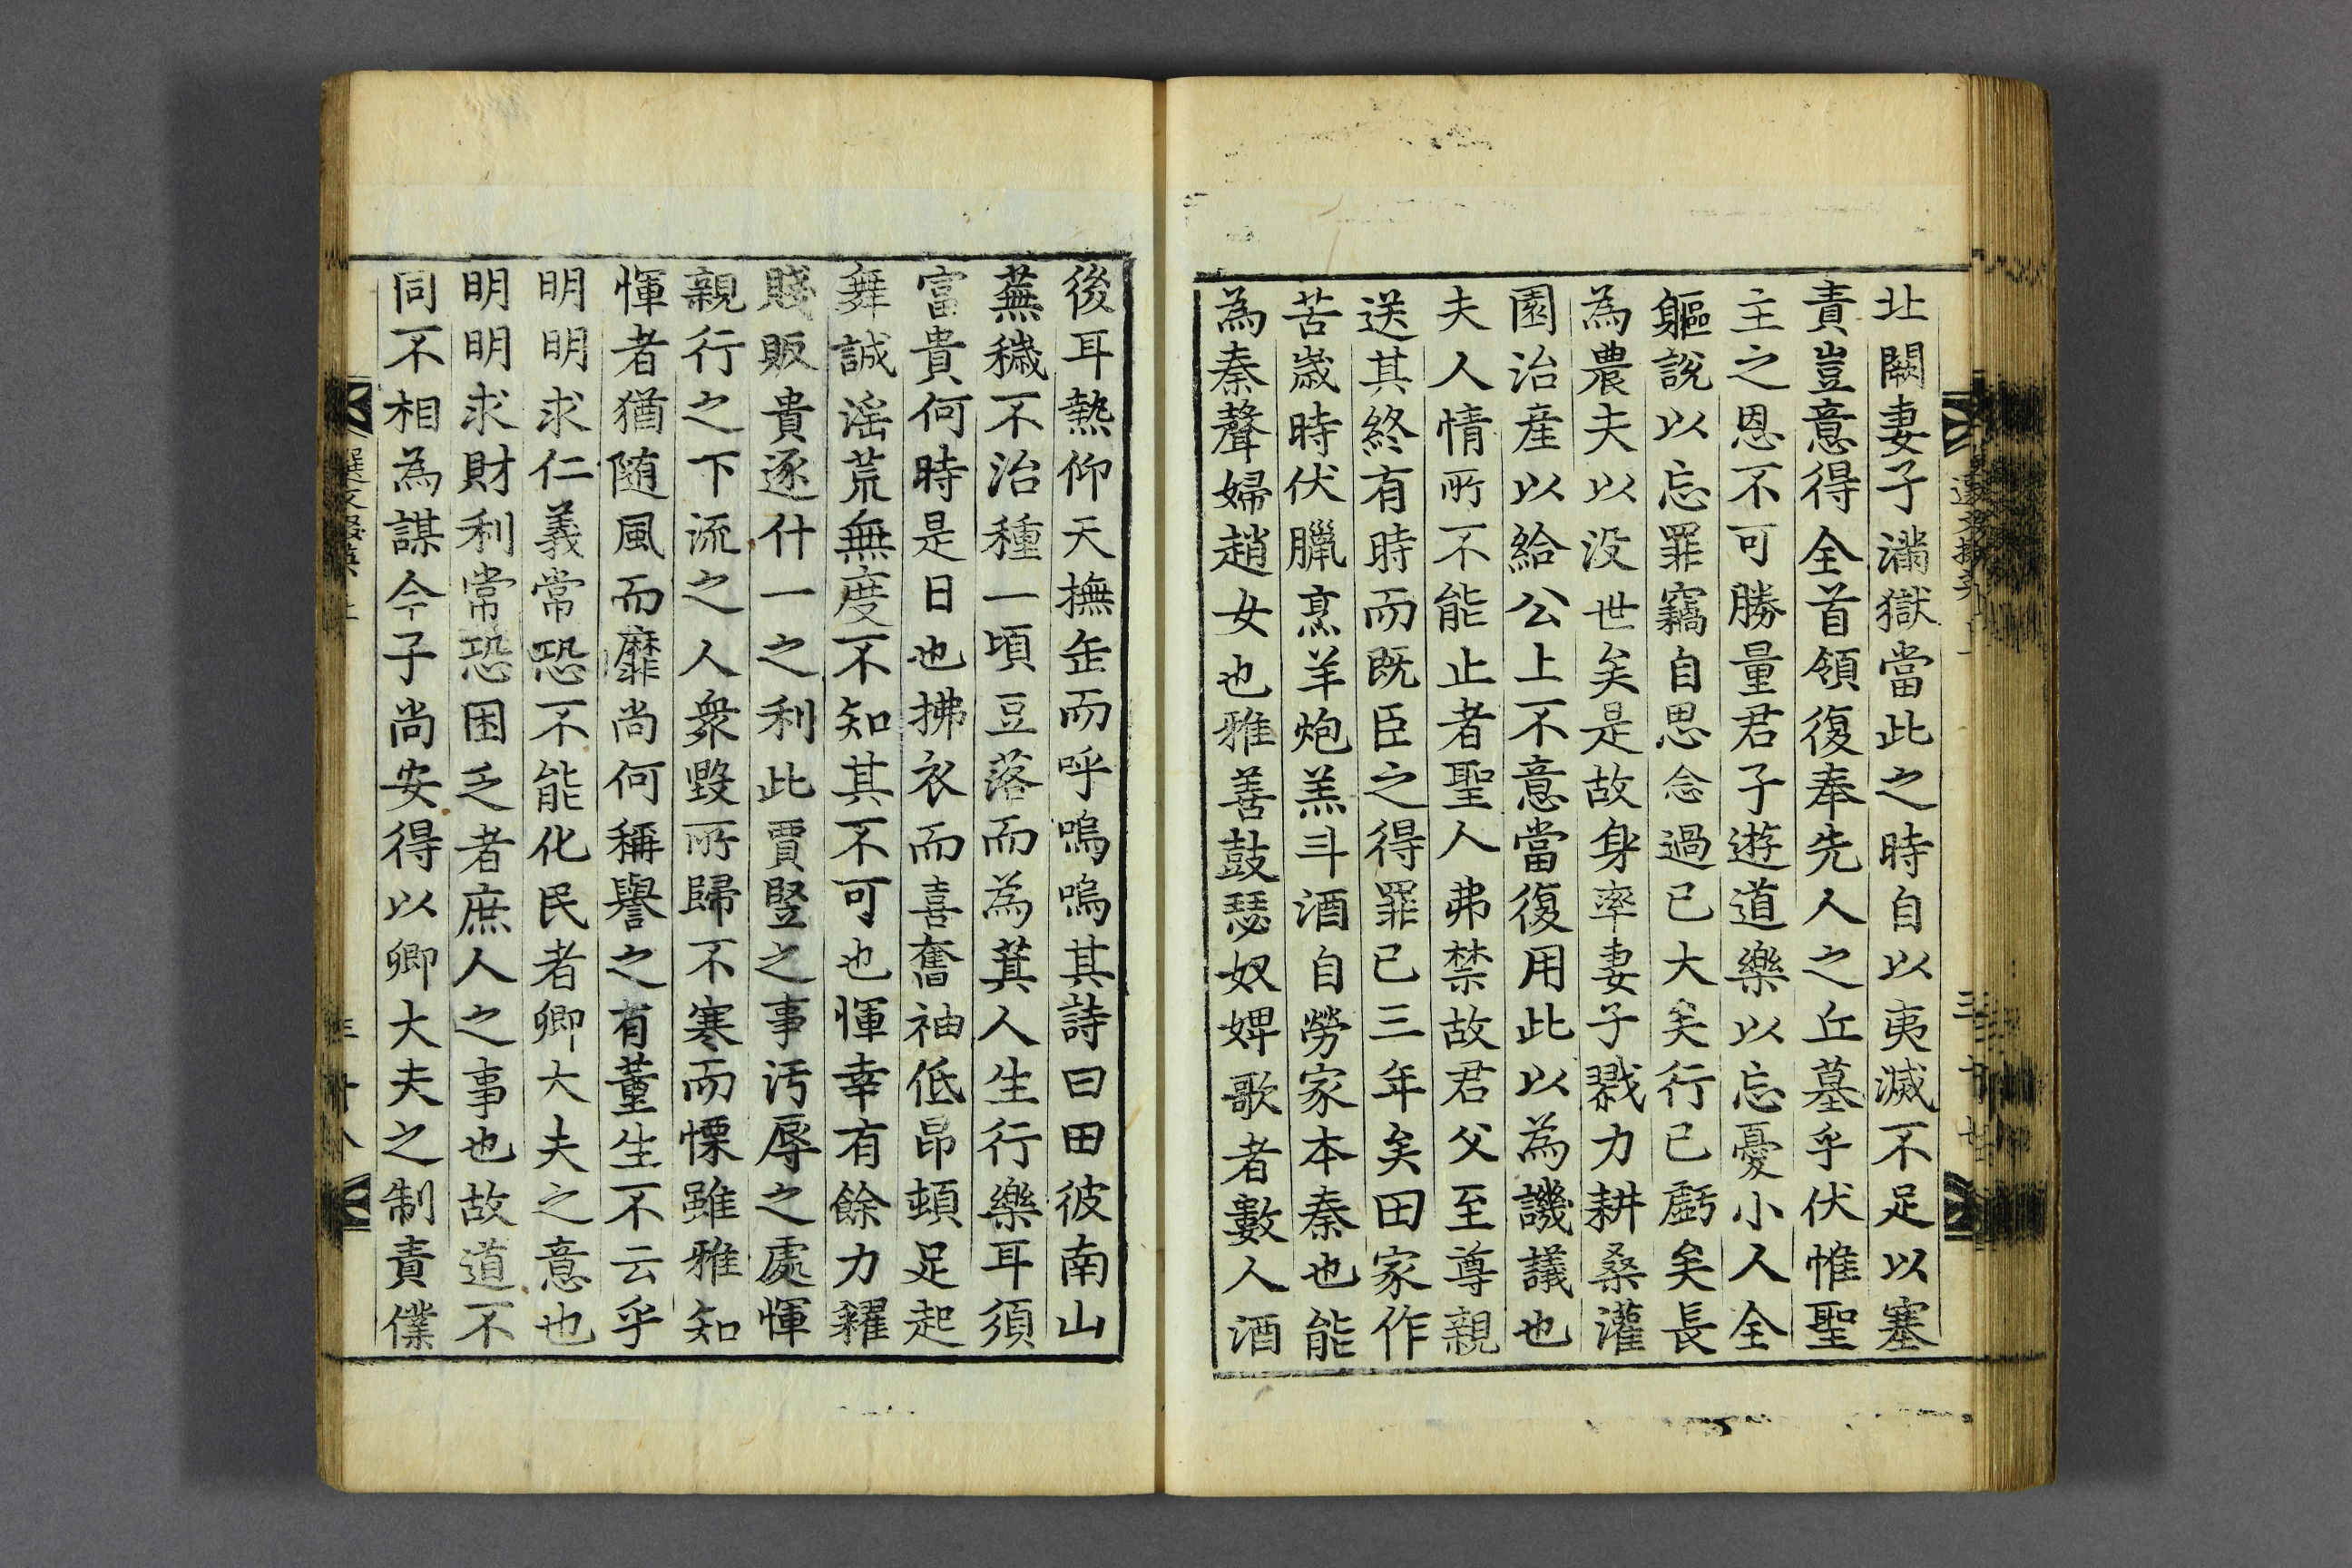 北闕妻子滿獄當此之時自以夷滅不足以塞
責豈意得全首領復奉先人之丘墓乎伏惟聖
主之恩不可勝量君子遊道樂以忘憂小人全
軀說以忘罪竊自思念過已大矣行已虧矣長
為農夫以没世矣是故身率妻子戮力耕桑灌
園治産以給公上不意當復用此以為譏議也
夫人情所不能止者聖人弗禁故君父至尊親
送其終有時而既臣之得罪已三年矣田家作
苦歲時伏臘烹羊炮羔斗酒自勞家本秦也能
為秦聲婦趙女也雅善鼓瑟奴婢歌者數人酒
後耳熱仰天撫缶而呼嗚嗚其詩曰田彼南山
蕪穢不治種一頃豆落而為萁人生行樂耳須
富貴何時是日也拂衣而喜奮袖低昂頓足起
舞誠滛荒無度不知其不可也惲幸有餘力糴
賤販貴逐什一之利此賈豎之事汚辱之處惲
親行之下流之人衆毀所歸不寒而慄雖雅知
惲者猶随風而靡尚何稱譽之有董生不云乎
明明求仁義常恐不能化民者卿大夫之意也
明明求財利常恐困乏者庶人之事也故道不
同不相為謀今子尚安得以卿大夫之制責僕